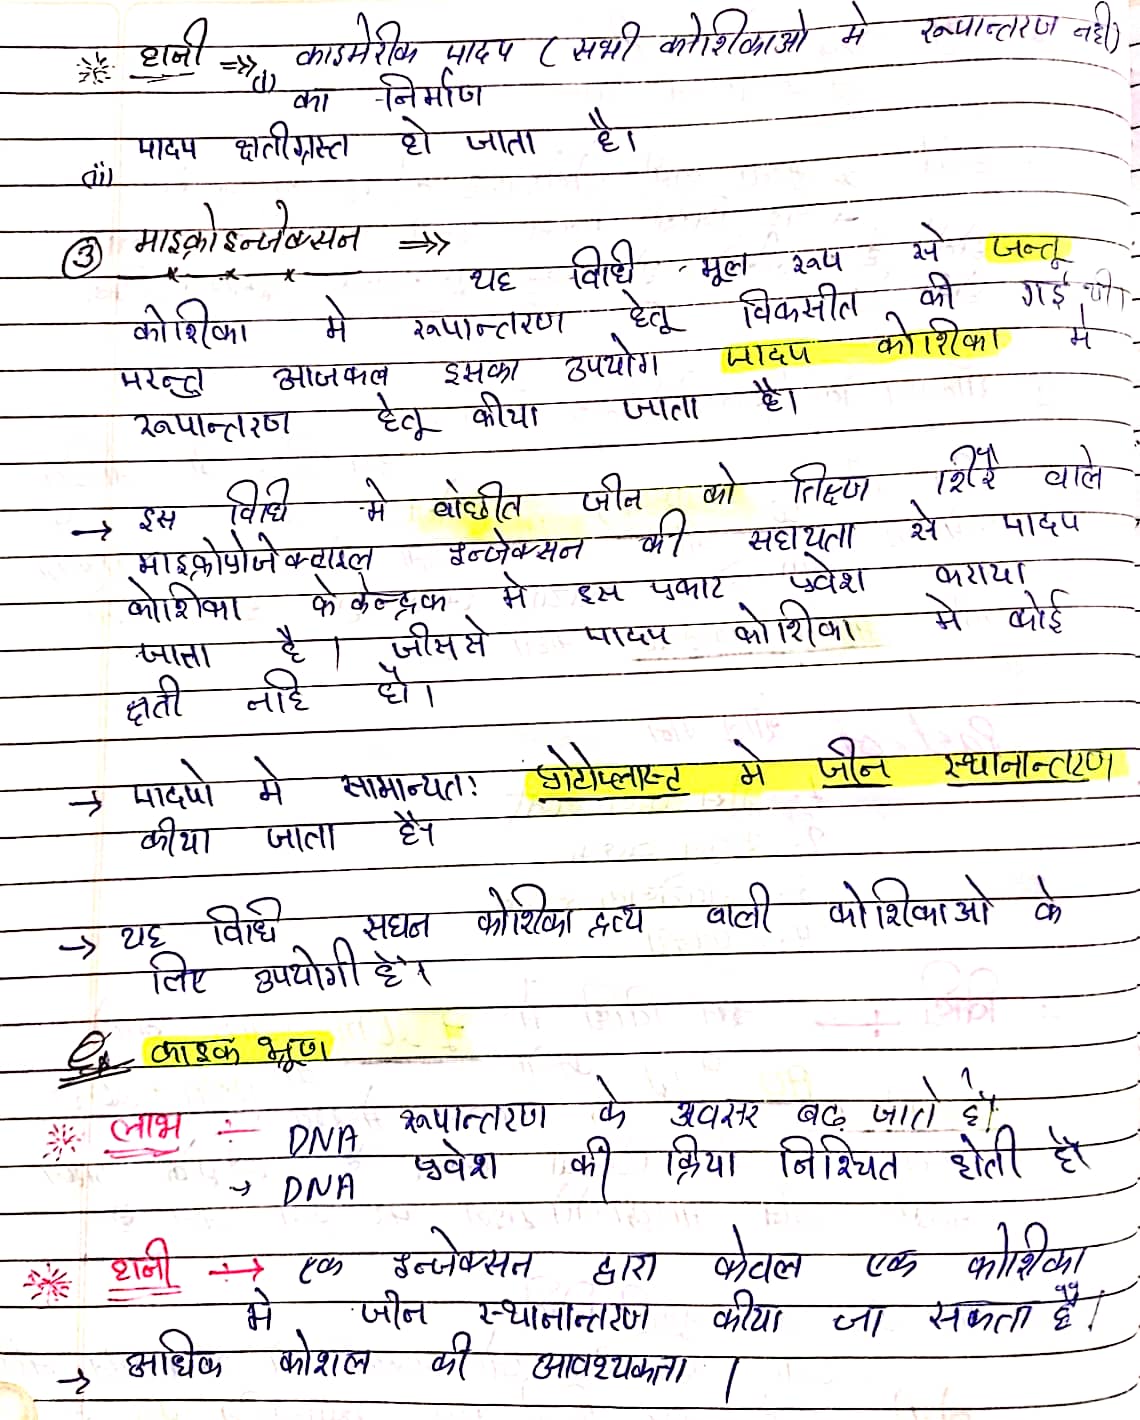 हानी ⇒ (i) काइमेरीक पादप (सभी कोशिकाओ मे रूपान्तरण नही)
का निर्माण
(ii) पादप क्षतीग्रस्त हो जाता है।
③ माइक्रोइन्जेक्सन ⇒
यह विधि मूल रूप से जन्तू
कोशिका मे रूपान्तरण हेतू विकसीत की गई थी।
परन्तु आजकल इसका उपयोग पादप कोशिका मे
रूपान्तरण हेतू कीया जाता है।
→ इस विधि मे वांछीत जीन को तिक्ष्ण शिरे वाले
माइक्रोप्रोजेक्टाइल इन्जेक्सन की सहायता से पादप
कोशिका के केन्द्रक मे इस प्रकार प्रवेश कराया
जाता है। जीससे पादप कोशिका मे कोई
क्षती नहि हो।
→ पादपो मे सामान्यतः प्रोटोप्लास्ट मे जीन स्थानान्तरण
कीया जाता है।
→ यह विधि सघन कोशिका द्रव्य वाली कोशिकाओ के
लिए उपयोगी है।
Ex काइक भ्रूण
लाभ ÷ DNA रूपान्तरण के अवसर बढ़ जाते है।
→ DNA प्रवेश की क्रिया निश्चित होती है
हानी → एक इन्जेक्सन द्वारा केवल एक कोशिका
मे जीन स्थानान्तरण कीया जा सकता है।
→ अधिक कोशल की आवश्यकता।